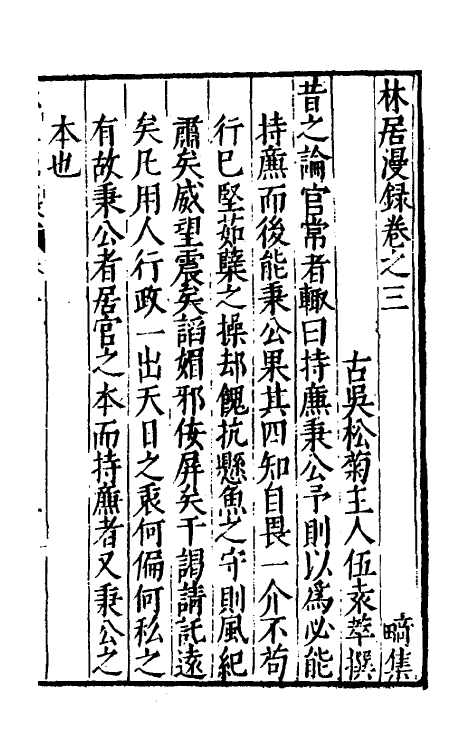 林居漫録卷之三
畸集
古吳松菊主人伍袁萃撰
昔之論官常者輙曰持廉秉公予則以爲必能
持廉而後能秉公果其四知自畏一介不苟
行已堅茹櫱之操却餽抗懸魚之守則風紀
肅矣威望震矣謟媚邪佞屏矣干謁請託遠
矣凡用人行政一出天日之衷何偏何私之
有故秉公者居官之本而持廉者又秉公之
本也